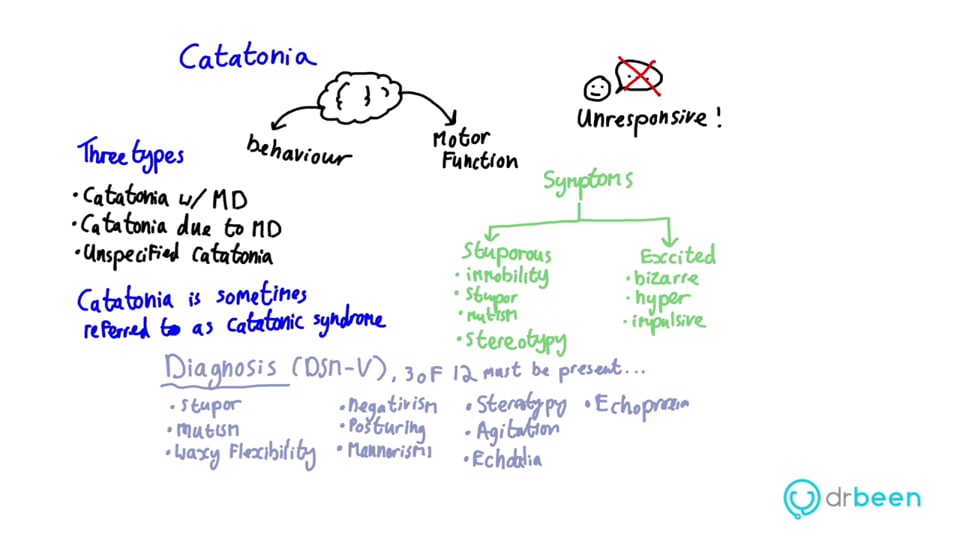 Catatonia
Unresponsive!
behaviour
Motor
Function
Three types
• Catatonia w/ MD
• Catatonia due to MD
• Unspecified Catatonia
Catatonia is sometimes
referred to as catatonic syndrome
Symptoms
Stuporous
• immobility
• stupor
• mutism
• stereotypy
Excited
• bizarre
• hyper
• impulsive
Diagnosis (DSM-V), 3 of 12 must be present...
• Stupor
• Mutism
• Waxy Flexibility
• Negativism
• Posturing
• Mannerisms
• Agitation
drbeen